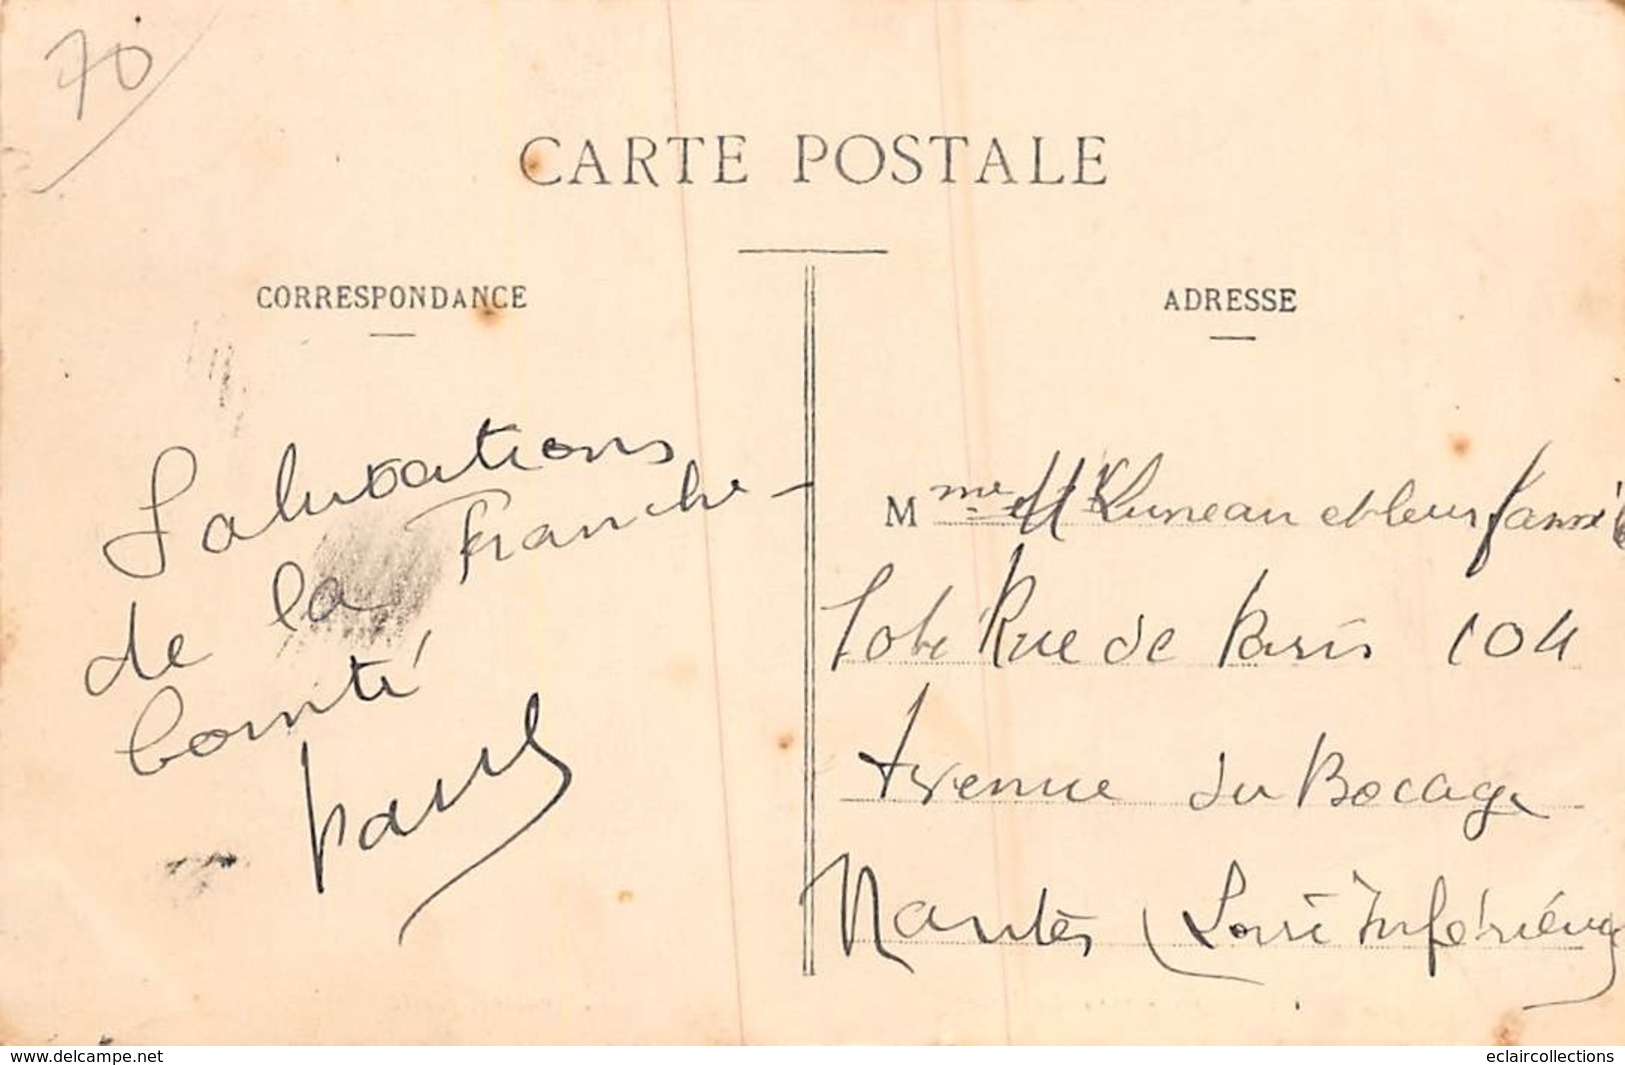 70
CARTE POSTALE
CORRESPONDANCE
Salutations
de la Franche -
Comté
Paul
ADRESSE
Mme et Mr Luneau et leur famille
Rue de Paris 104
Avenue du Bocage
Nantes (Loire Inférieure
www.delcampe.net
eclaircollections